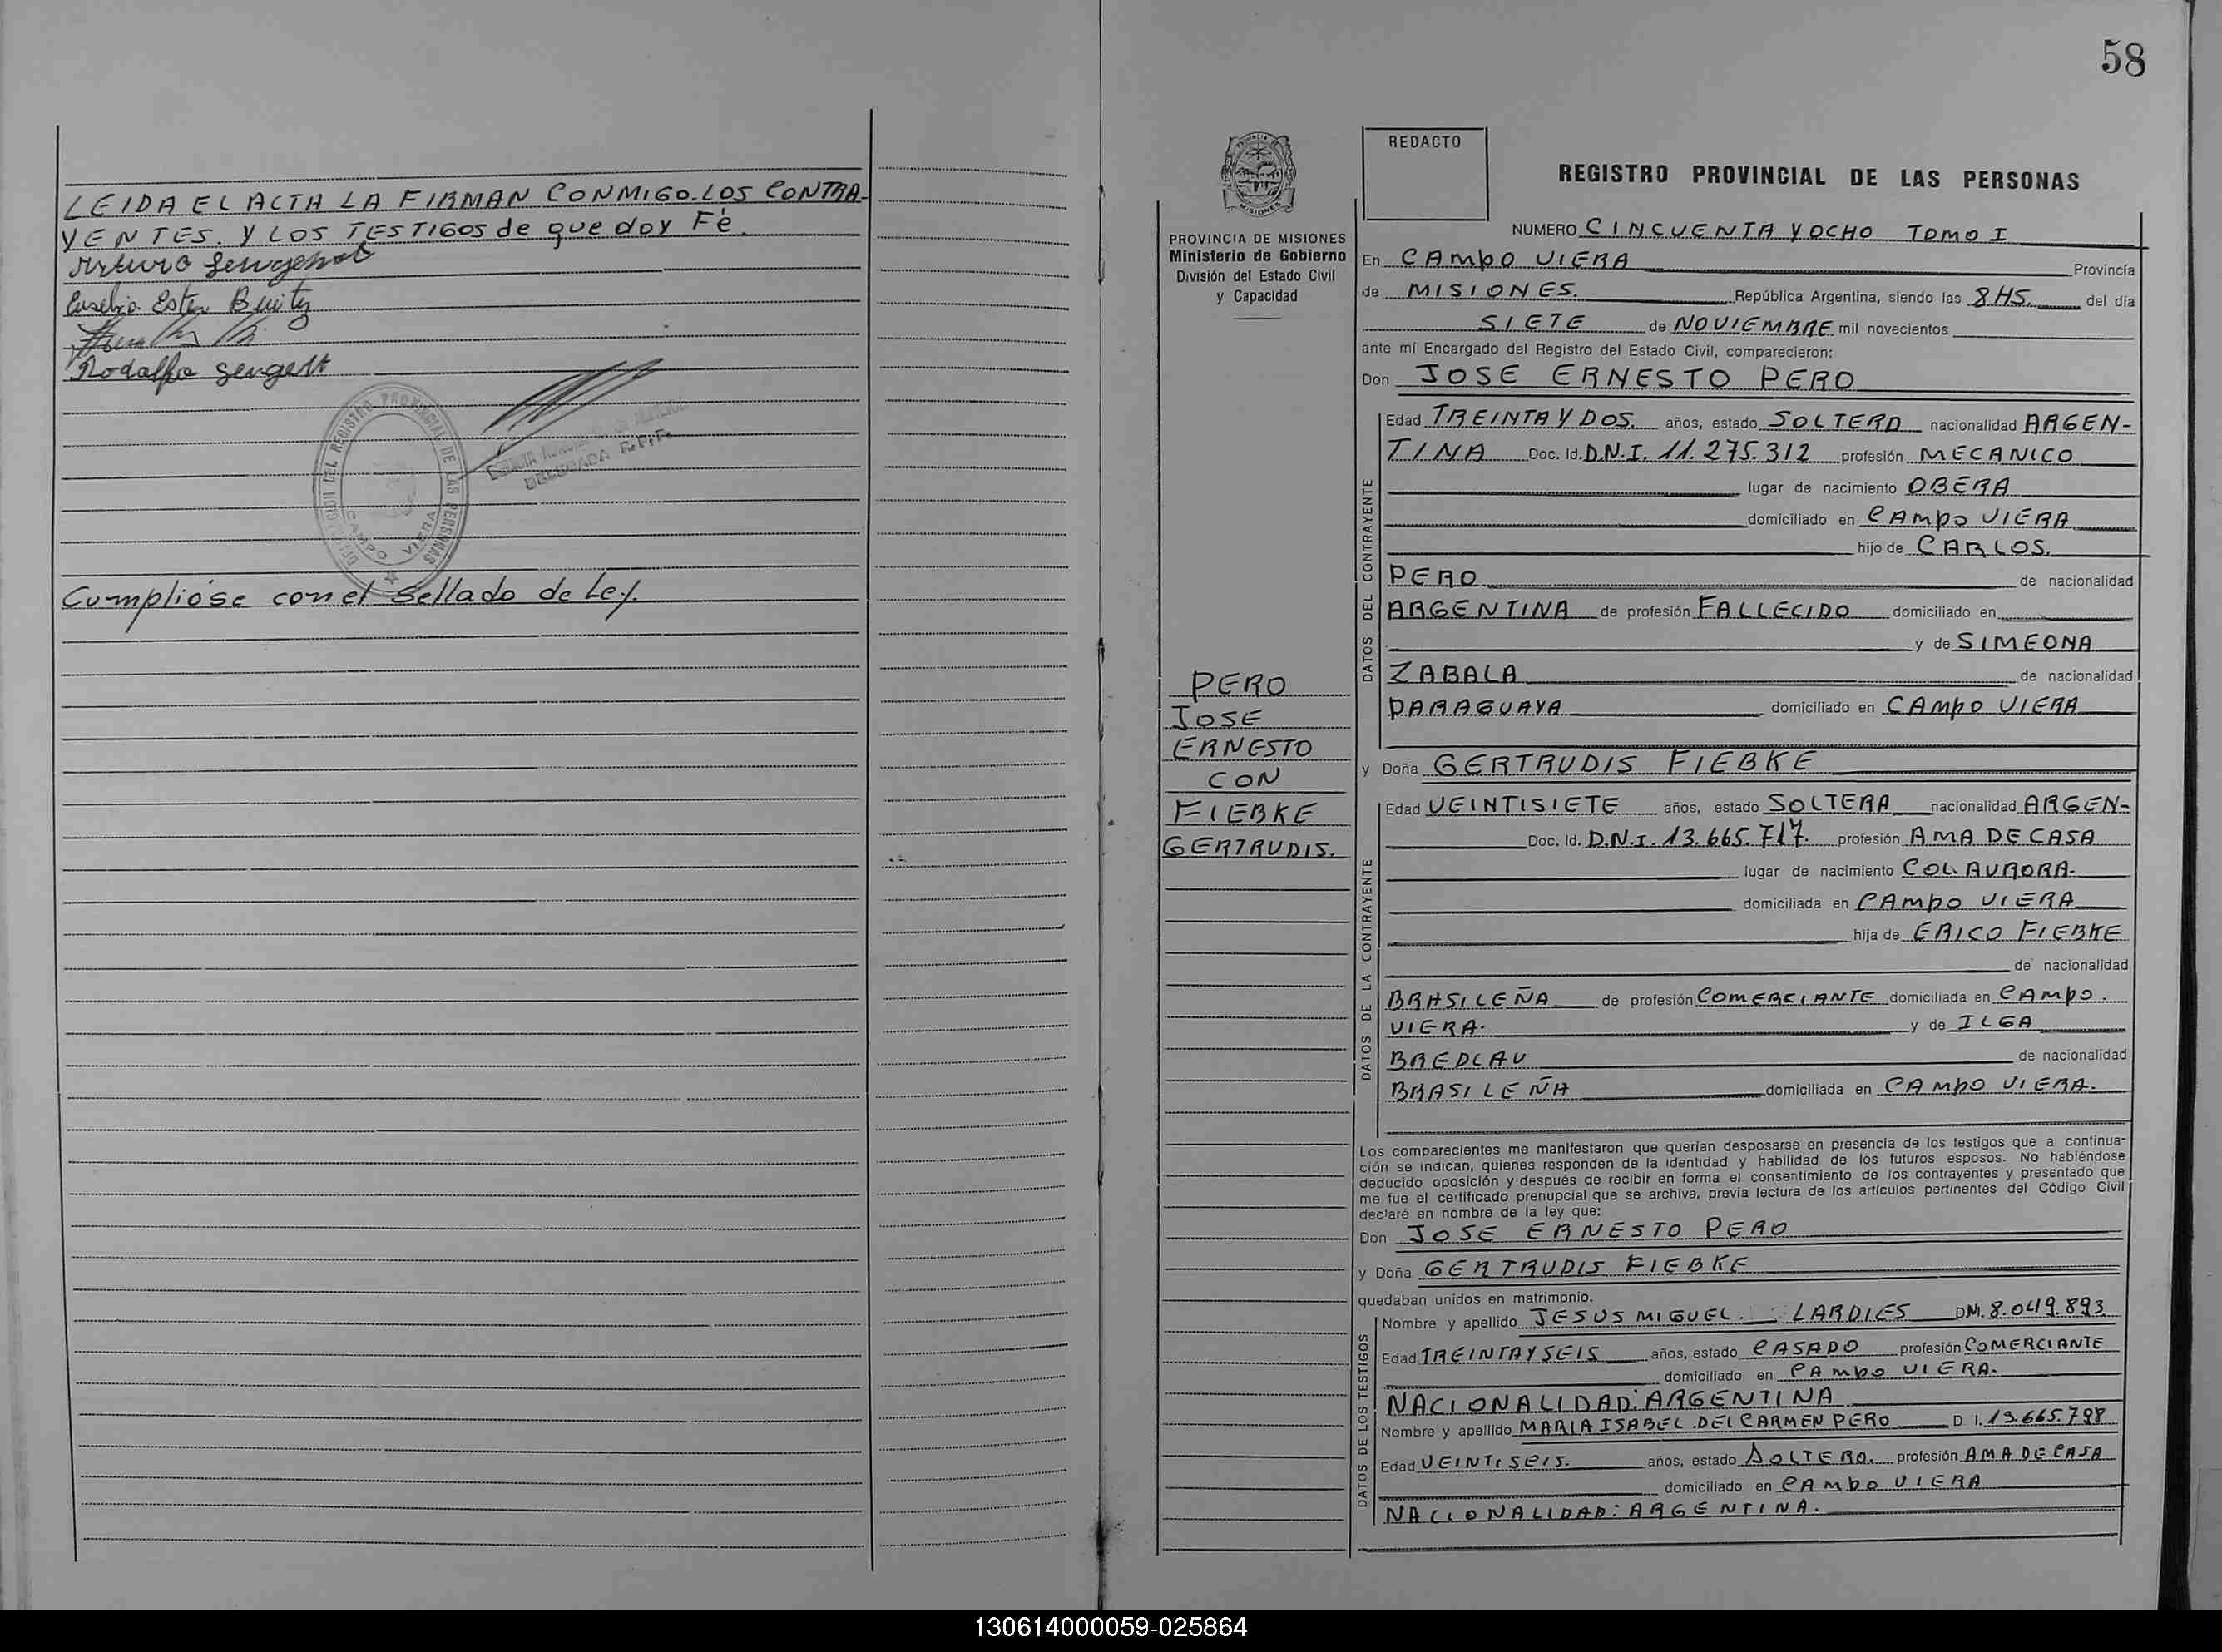 LEIDA EL ACTA LA FIRMAN CONMIGO. LOS CONTRA-
YENTES. Y LOS TESTIGOS de que doy Fé.
Arturo
Eusebia Ester
Rodolfo
OFICINA DEL REGISTRO PROVINCIAL DE LAS PERSONAS
CAMPO VIERA
DELEGADA R.P.P.
Cumplióse con el Sellado de Ley.
58
PROVINCIA DE MISIONES
Ministerio de Gobierno
División del Estado Civil
y Capacidad
PERO
JOSE
ERNESTO
CON
FIEBKE
GERTRUDIS.
REDACTO
REGISTRO PROVINCIAL DE LAS PERSONAS
NUMERO CINCUENTA Y OCHO TOMO I
En CAMPO VIERA Provincia
de MISIONES. República Argentina, siendo las 8 HS. del día
SIETE de NOVIEMBRE mil novecientos
ante mí Encargado del Registro del Estado Civil, comparecieron:
Don JOSE ERNESTO PERO
DATOS DEL CONTRAYENTE
Edad TREINTA Y DOS. años, estado SOLTERO nacionalidad ARGEN-
TINA Doc. Id. D.N.I. 11.275.312 profesión MECANICO
lugar de nacimiento OBERA
domiciliado en CAMPO VIERA
hijo de CARLOS.
PERO de nacionalidad
ARGENTINA de profesión FALLECIDO domiciliado en
y de SIMEONA
ZABALA de nacionalidad
PARAGUAYA domiciliado en CAMPO VIERA
y Doña GERTRUDIS FIEBKE
DATOS DE LA CONTRAYENTE
Edad VEINTISIETE años, estado SOLTERA nacionalidad ARGEN-
Doc. Id. D.N.I. 13.665.717. profesión AMA DE CASA
lugar de nacimiento COL. AURORA-
domiciliada en CAMPO VIERA
hija de ERICO FIEBKE
de nacionalidad
BRASILEÑA de profesión COMERCIANTE domiciliada en CAMPO.
VIERA. y de ILGA
BREDLAU de nacionalidad
BRASILEÑA domiciliada en CAMPO VIERA.
Los comparecientes me manifestaron que querían desposarse en presencia de los testigos que a continua-
ción se indican, quienes responden de la identidad y habilidad de los futuros esposos. No habiéndose
deducido oposición y después de recibir en forma el consentimiento de los contrayentes y presentado que
me fue el certificado prenupcial que se archiva, previa lectura de los artículos pertinentes del Código Civil
declaré en nombre de la ley que:
Don JOSE ERNESTO PERO
y Doña GERTRUDIS FIEBKE
quedaban unidos en matrimonio.
DATOS DE LOS TESTIGOS
Nombre y apellido JESUS MIGUEL. LARDIES DNI. 8.049.893
Edad TREINTA Y SEIS años, estado CASADO profesión COMERCIANTE
domiciliado en CAMPO VIERA.
NACIONALIDAD: ARGENTINA
Nombre y apellido MARIA ISABEL DEL CARMEN PERO D I. 13.665.798
Edad VEINTISEIS. años, estado SOLTERO. profesión AMA DE CASA
domiciliado en CAMPO VIERA
NACIONALIDAD: ARGENTINA.
130614000059-025864